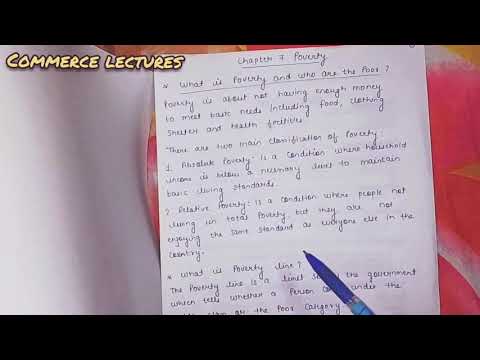 COMMERCE LECTURES
Chapter 7 Poverty
* What is Poverty and who are the Poor?
Poverty is about not having enough money
to meet basic needs including food, clothing
Shelter and Health
There are two main classification of Poverty:
1. Absolute Poverty: Is a condition where household
income is below a necessary level to maintain
basic living standards.
2. Relative Poverty: Is a condition where people not
living in total Poverty but they are not
enjoying the same standard as everyone else in the
Country.
* What is Poverty line?
The Poverty line is a limit the government
which tells whether a Person under the
or the Poor Category